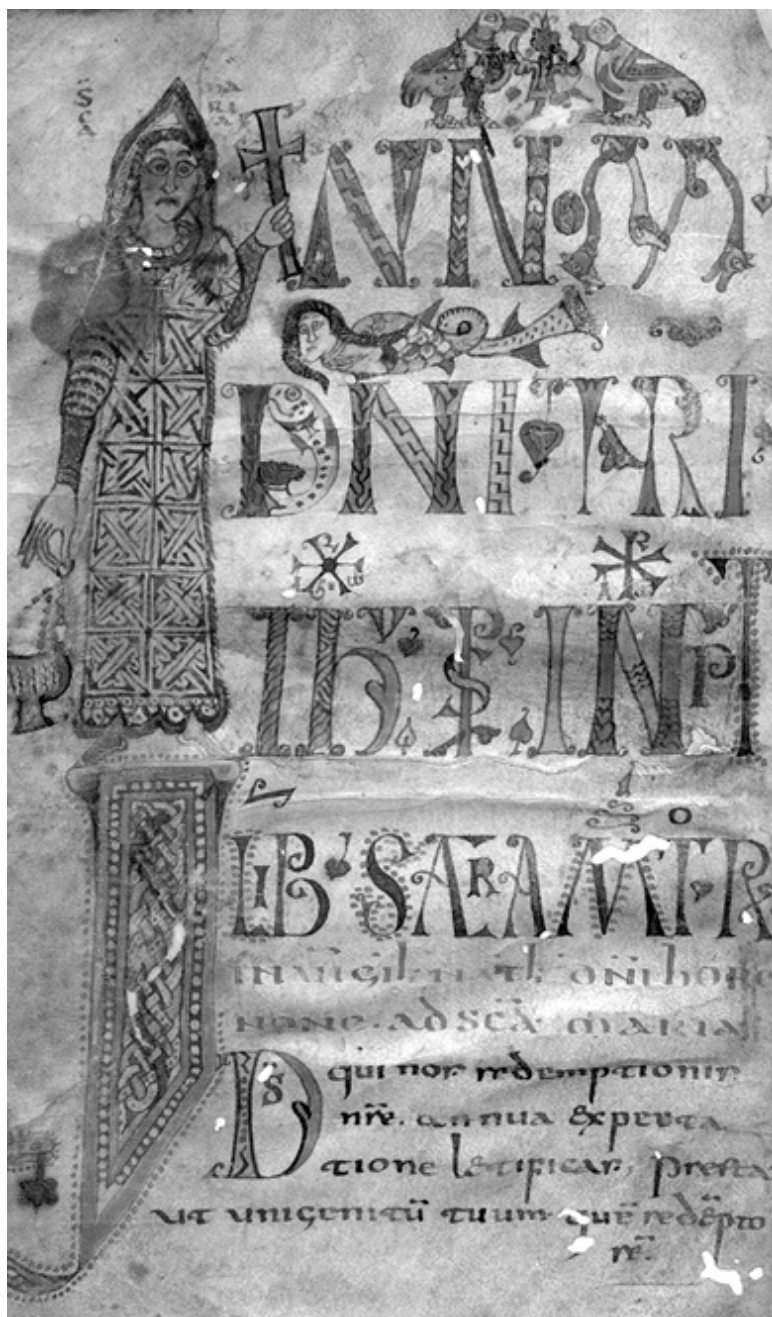 SCA MARIA
INNOM
DNI NRI
LIB SACRAMTOR
IN VIGIL NATL DNI HORA
NONE AD SCA MARIA
DS qui nos redemptionis
nr̄e. annua expecta
tione letificas, presta
ut unigenitū tuum quē redēpto
rē.